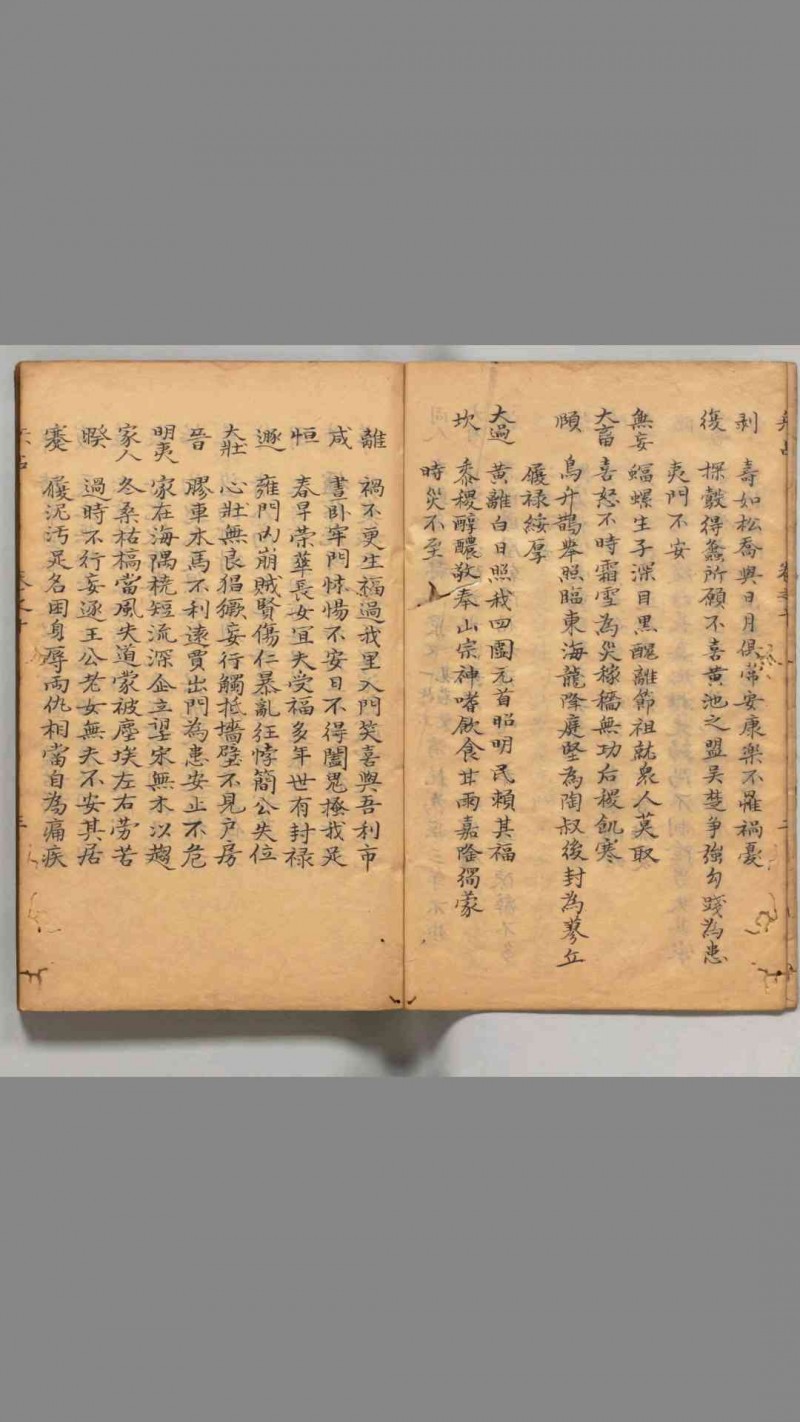 剥 壽如松喬與日月俱常安康樂不罹禍憂
復 探觳得蠡所願不喜黃池之盟吴楚争強勾踐為患
夷門不安
無妄 蝠螺生子深目黒醜離節祖就衆人莫取
大畜 喜怒不時霜雪為災稼穡無功后稷飢寒
頤 烏升鵲舉照臨東海龍降庭堅為陶叔後封為蓼丘
履禄綏厚
大過 黄離白日照我四國元首昭明民賴其福
坎 黍稷醇醲敬奉山宗神嗜飲食甘雨嘉隆獨蒙
時災不至
離 禍不更生福過我里入門笑喜與吾利市
咸 晝卧牢門悚惕不安目不得闔鬼搔我足
恒 春早荣華長女宜夫受福多年世有封禄
遯 雍門内崩賊賢傷仁暴亂狂悖簡公失位
大壯 心壯無良猖獗妄行觸抵墻壁不見户房
晉 膠車木馬不利遠賈出門為患安止不危
明夷 家在海隅橈短流深企立望宋無木以趨
家人 冬桑枯槁當風失道蒙被塵埃左右勞苦
睽 過時不行妄逐王公老女無夫不安其居
蹇 儗泥汚足名困身辱两仇相當自為痛疾